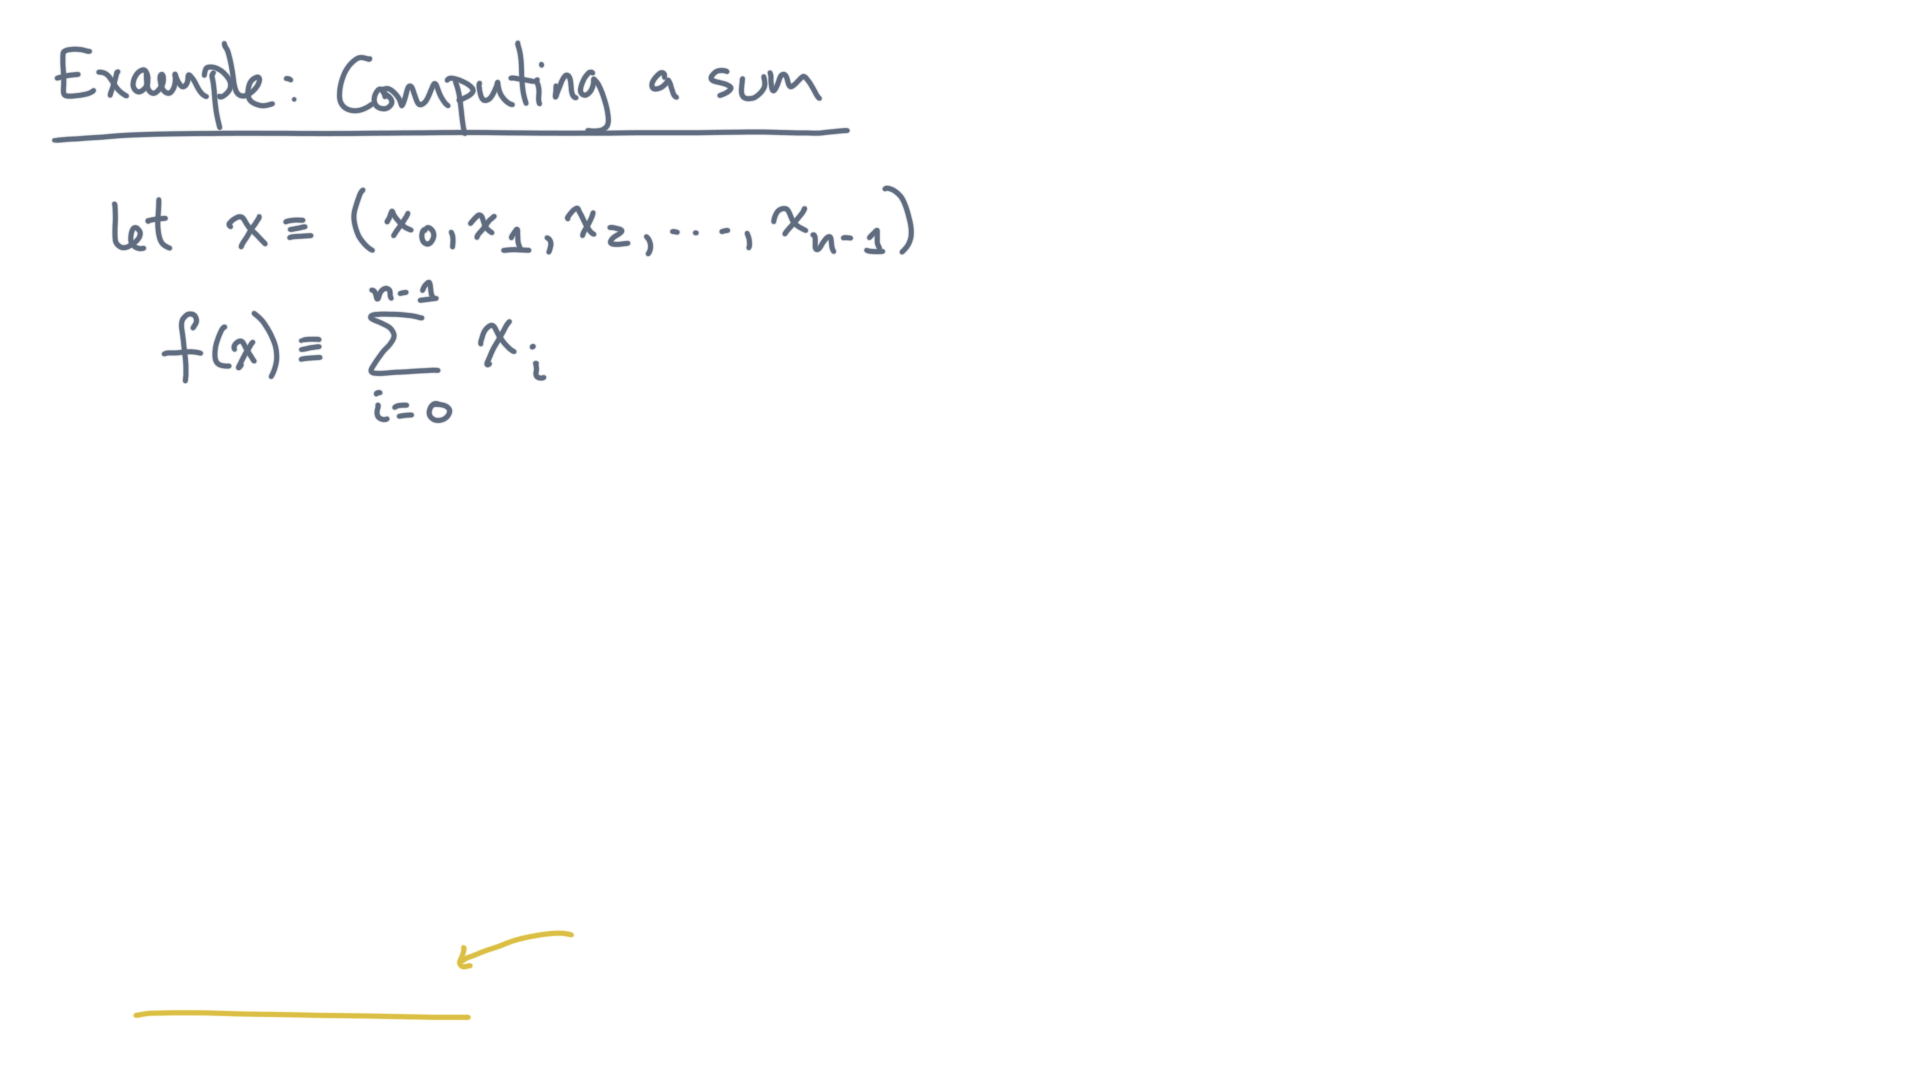 Example: Computing a sum
let x ≡ (x₀, x₁, x₂, ..., xₙ₋₁)
f(x) ≡ ∑_{i=0}^{n-1} xᵢ